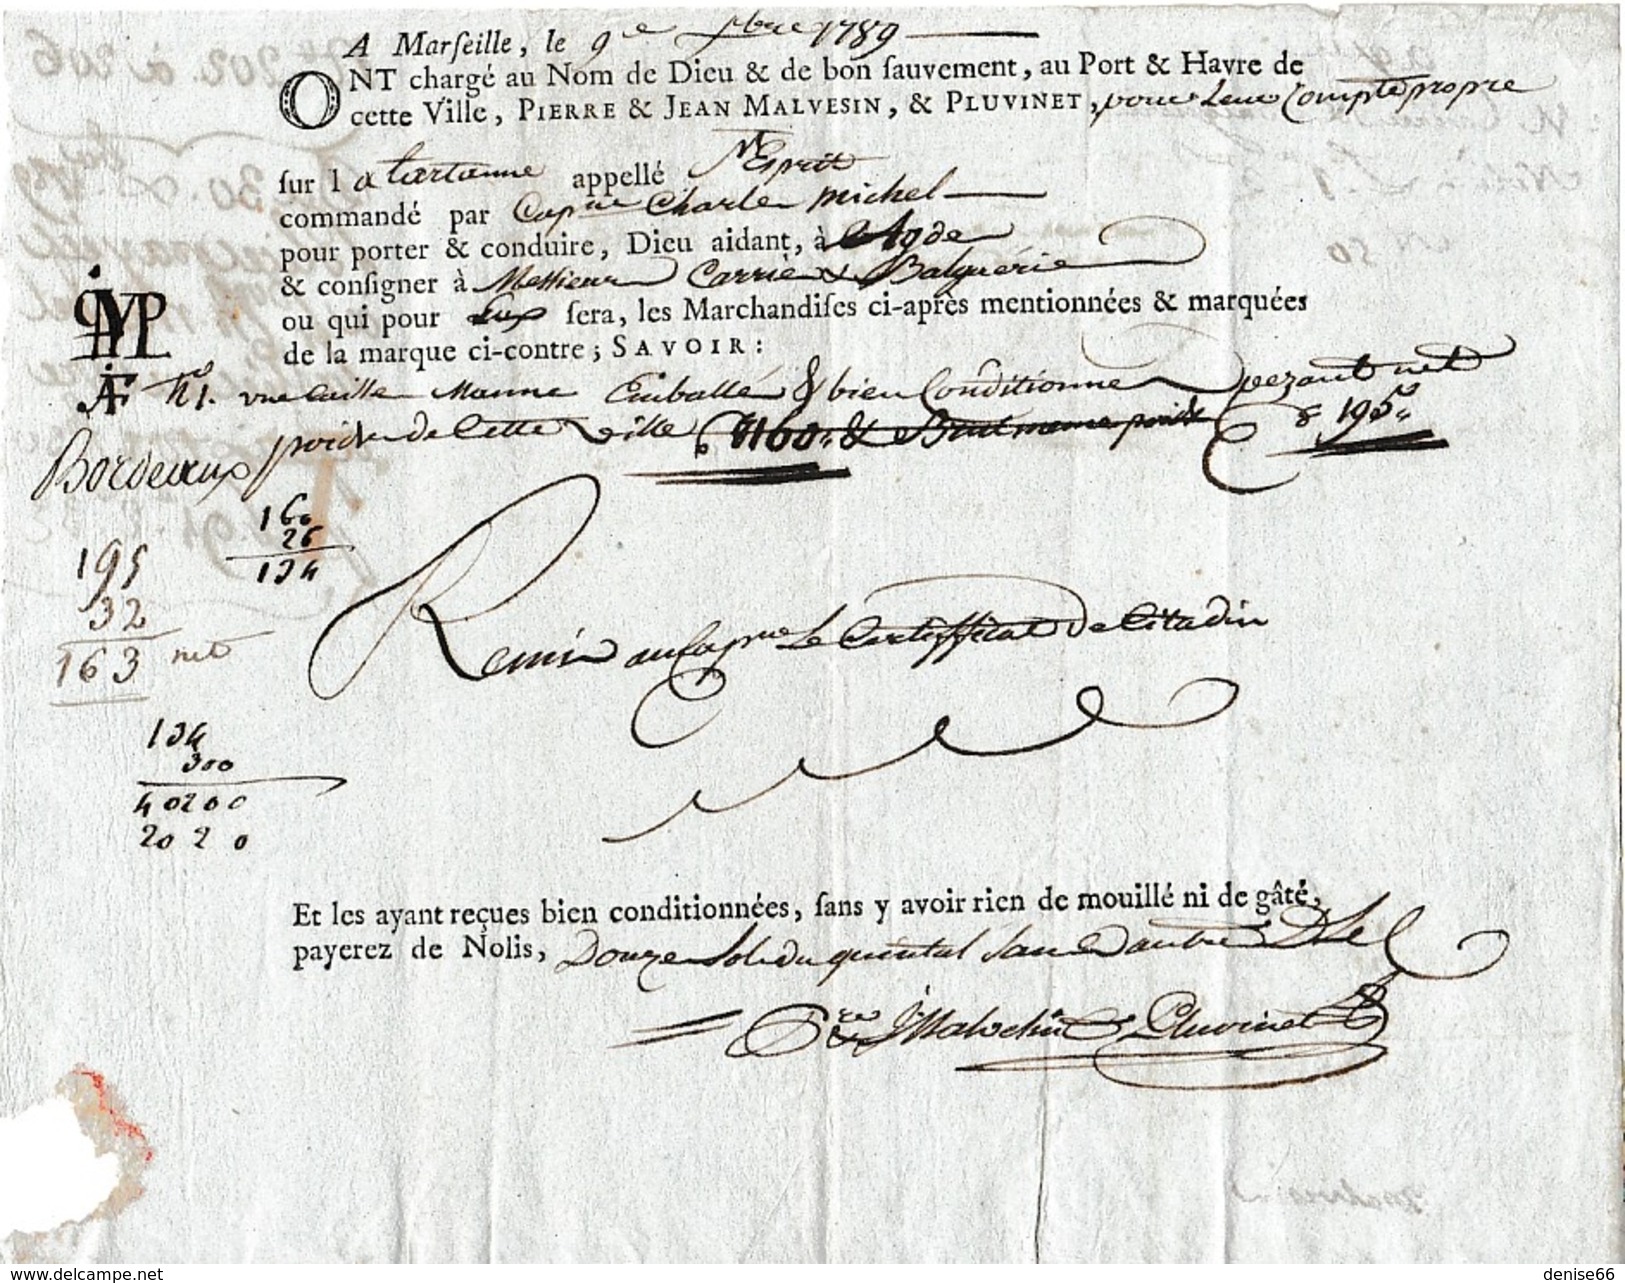 A Marſeille, le 9e 7bre 1789
ONT chargé au Nom de Dieu & de bon ſauvement, au Port & Havre de
cette Ville, PIERRE & JEAN MALVESIN, & PLUVINET, pour Leur Compte propre
ſur la tartanne appellé St Esprit
commandé par Capne Charle michel
pour porter & conduire, Dieu aidant, à Agde
& conſigner à Messieurs Carrié & Balguerie
ou qui pour Eux ſera, les Marchandiſes ci-après mentionnées & marquées
de la marque ci-contre; SAVOIR:
PMP
AF No 1. une Caisse Manne Emballé & bien Conditionné pezant net
Bordeaux poids de Cette ville 160 & Brut meme poids 195
160
26
134
195
32
163 net
Remis au Capne Le Certifficat de Citadin
134
300
40200
20 2 0
Et les ayant reçues bien conditionnées, ſans y avoir rien de mouillé ni de gâté,
payerez de Nolis, Douze Sols du quintal sans autre
Pre & J Malvesin & Pluvinet
denise66
www.delcampe.net